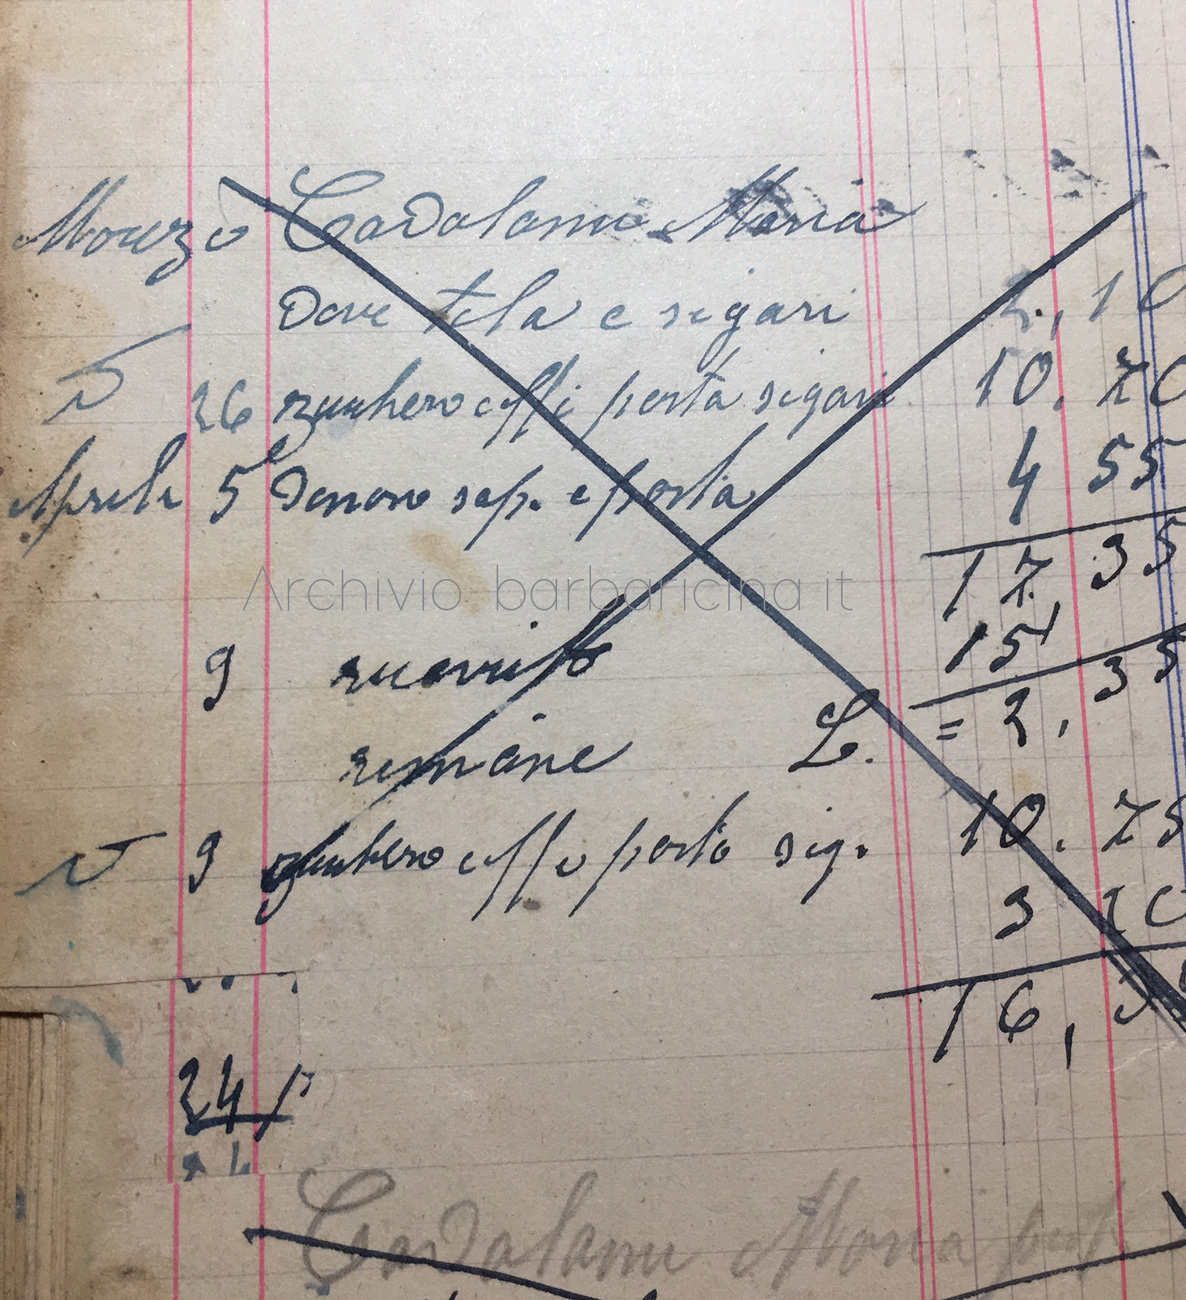 Marzo Cadalanu Maria
Dove tela e sigari 2,10
26 zucchero caffi porta sigari 10,70
Aprile 5 sap. e porta 4 55
17,35
15
9
= 2,35
rimane L.
9 zucchero caffe porta sig. 10.75
3 20
16,
24
Cadalanu Maria
Archivio barbaricina.it